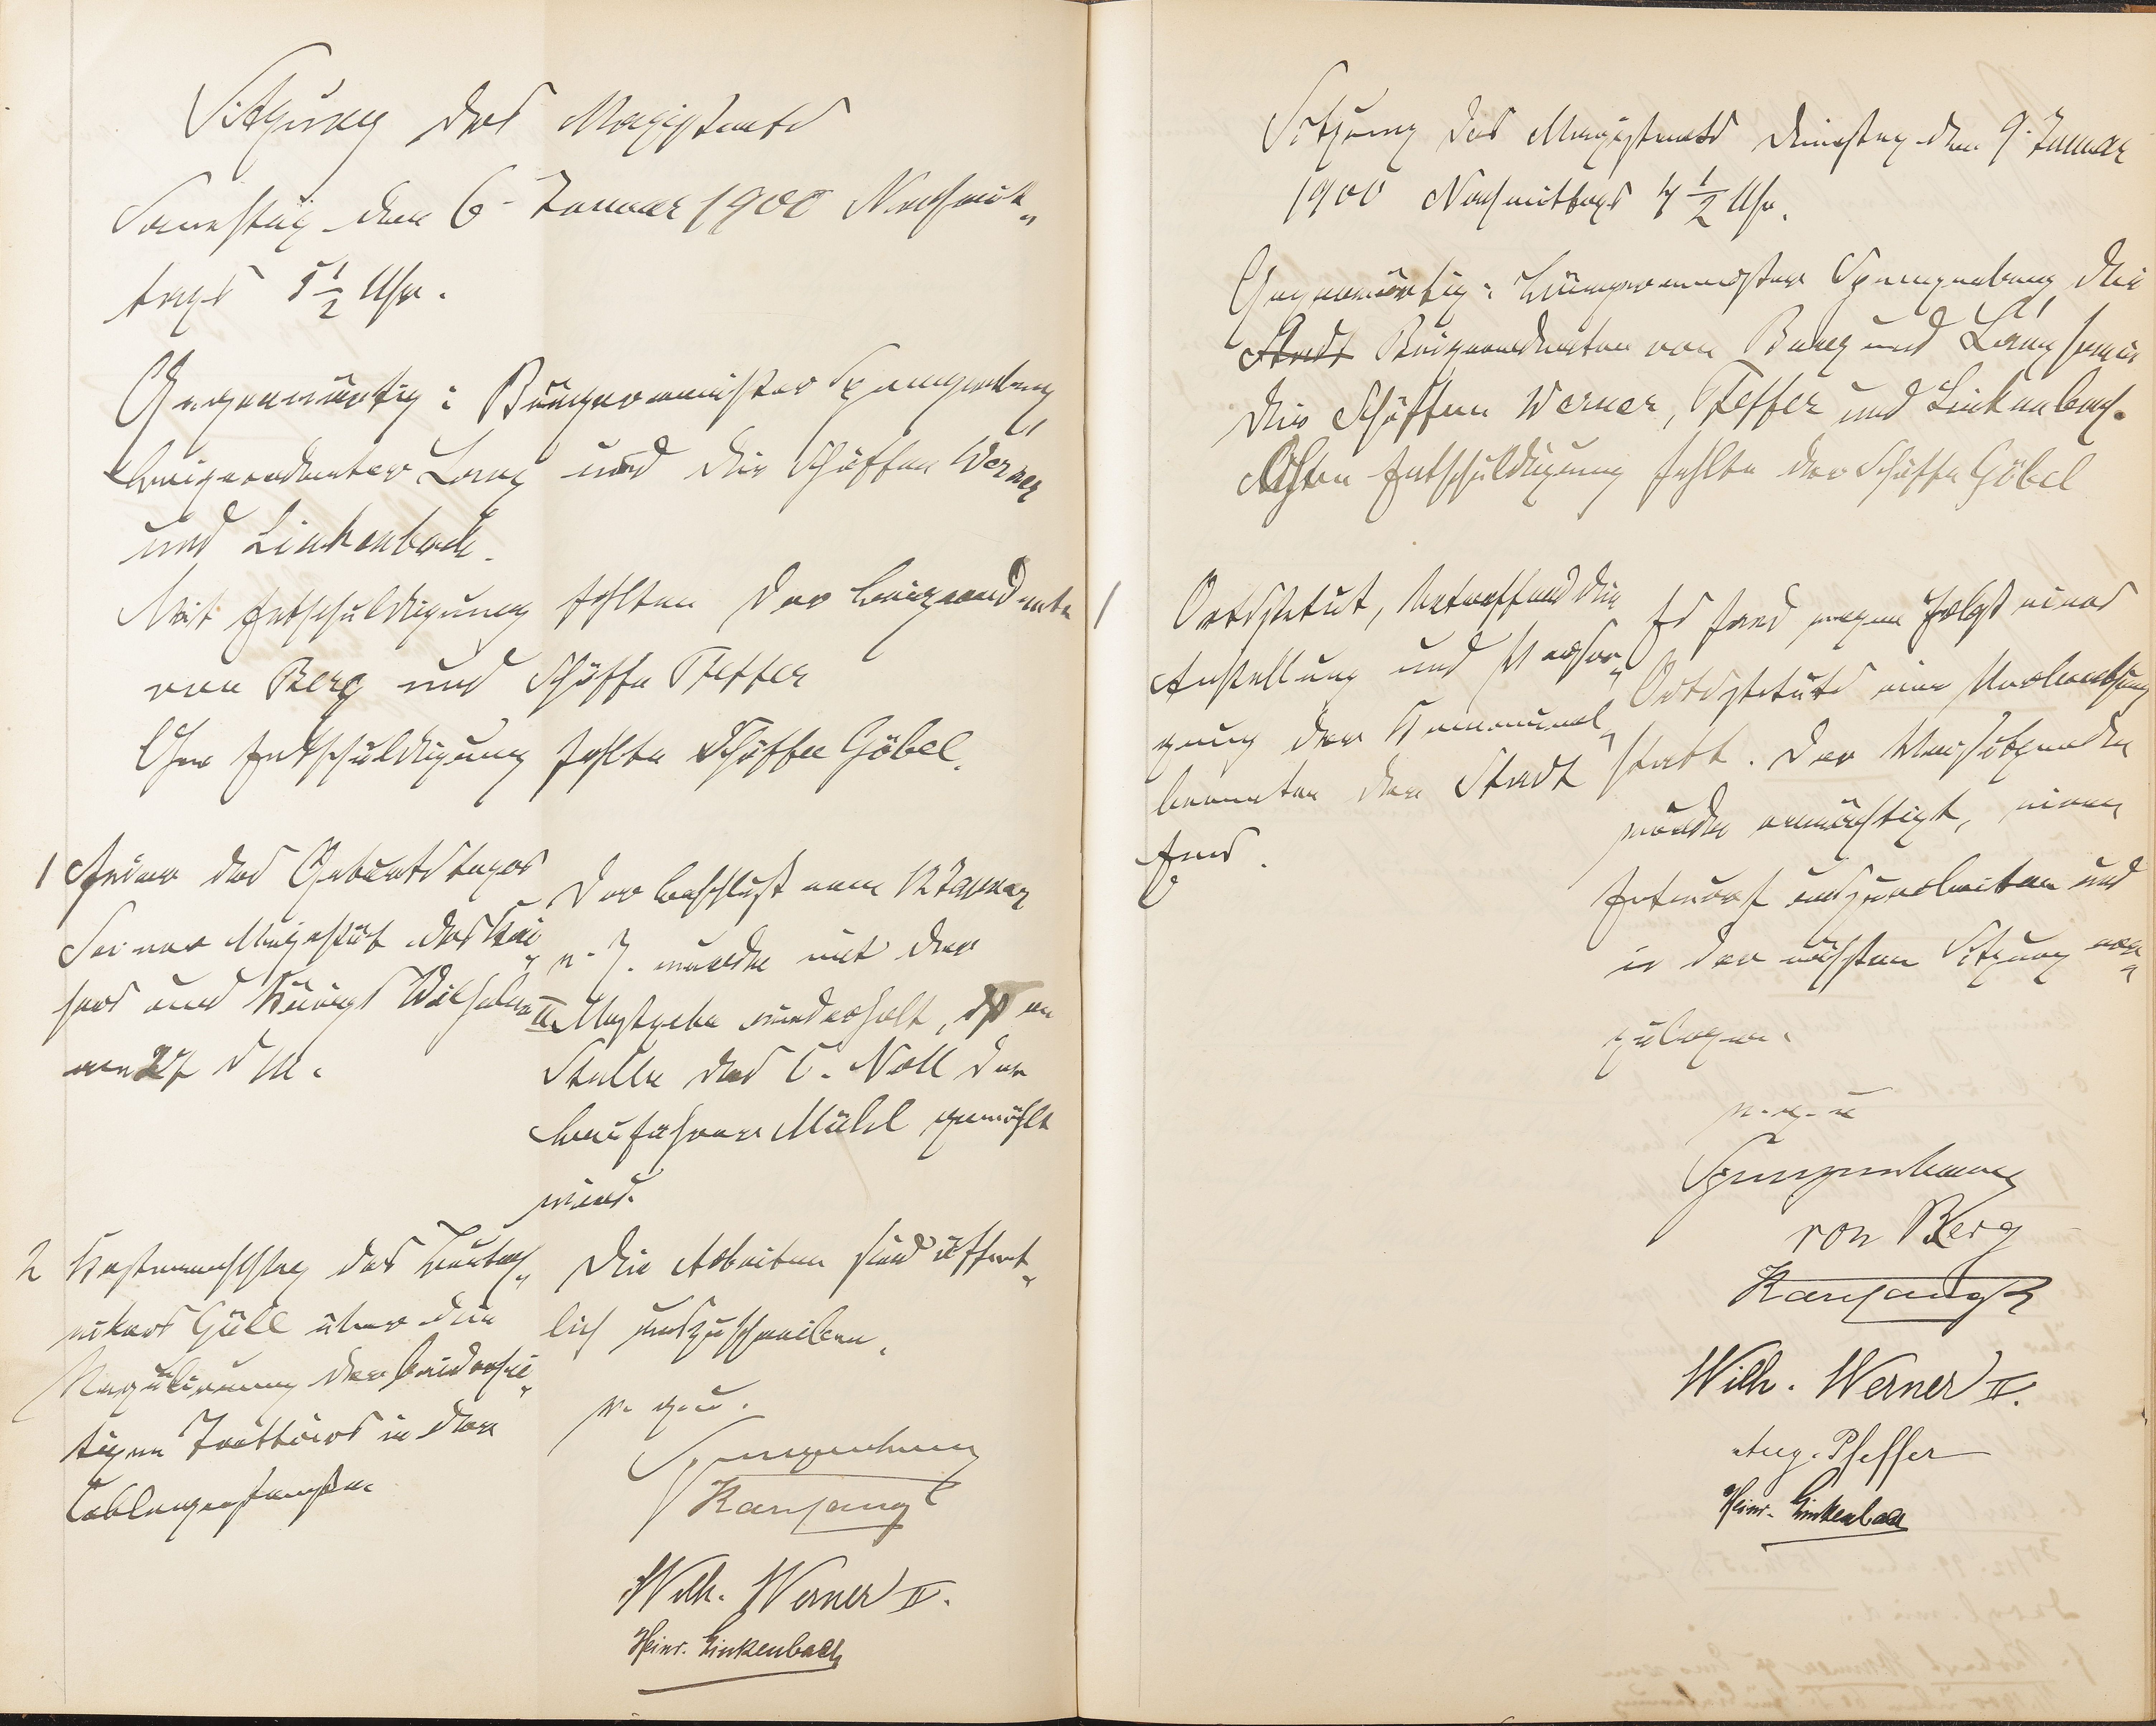 Sitzung des Magistrats
Samstag den 6. Januar 1900 Nachmit„
tags 5 1/2 Uhr.
Gegenwärtig: Bürgermeister Spangenberg
Beigeordneter Lang und die Schöffen Werner
und Linkenbach.
Mit Entschuldigung fehlten der Beigeordnete
von Berg und Schöffe Pfeffer
Ohne Entschuldigung fehlte Schöffe Göbel.
1 Feier des Geburtstages
Seiner Majestät des Kai„
sers und Königs Wilhelm II
am 27 d M.
Der Beschluß vom 12 Januar
v. J. wurde mit der
Maßgabe wiederholt, daß an
Stelle des C. Noll der
Mühl gewählt
wird.
2 Kostenanschlag des Bautech„
nikers Güll über die
Regulirung der beidersei„
tigen Trottoirs in der
Coblenzerstraße.
Die Arbeiten sind öffent„
lich auszuschreiben.
v. g. u.
Spangenberg
Wilh. Werner II.
Heinr. Linkenbach
Sitzung des Magistrats Dienstag den 9. Januar
1900 Nachmittags 4 1/2 Uhr.
Gegenwärtig: Bürgermeister Spangenberg die
Stadt Beigeordneten von Berg und Lang sowie
die Schöffen Werner, Pfeffer und Linkenbach.
Ohne Entschuldigung fehlte der Schöffe Göbel
1 Ortsstatut, betreffend die
Anstellung und Versor„
gung der Kommunal„
beamten der Stadt
Ems.
Es fand wegen Erlaß eines
Ortsstatuts eine Vorberathung
statt. Der Vorsitzende
wurde ermächtigt, einen
Entwurf auszuarbeiten und
in der nächsten Sitzung vor„
zulegen.
v. g. u
Spangenberg
von Berg
Wilh. Werner II.
Aug. Pfeffer
Heinr. Linkenbach